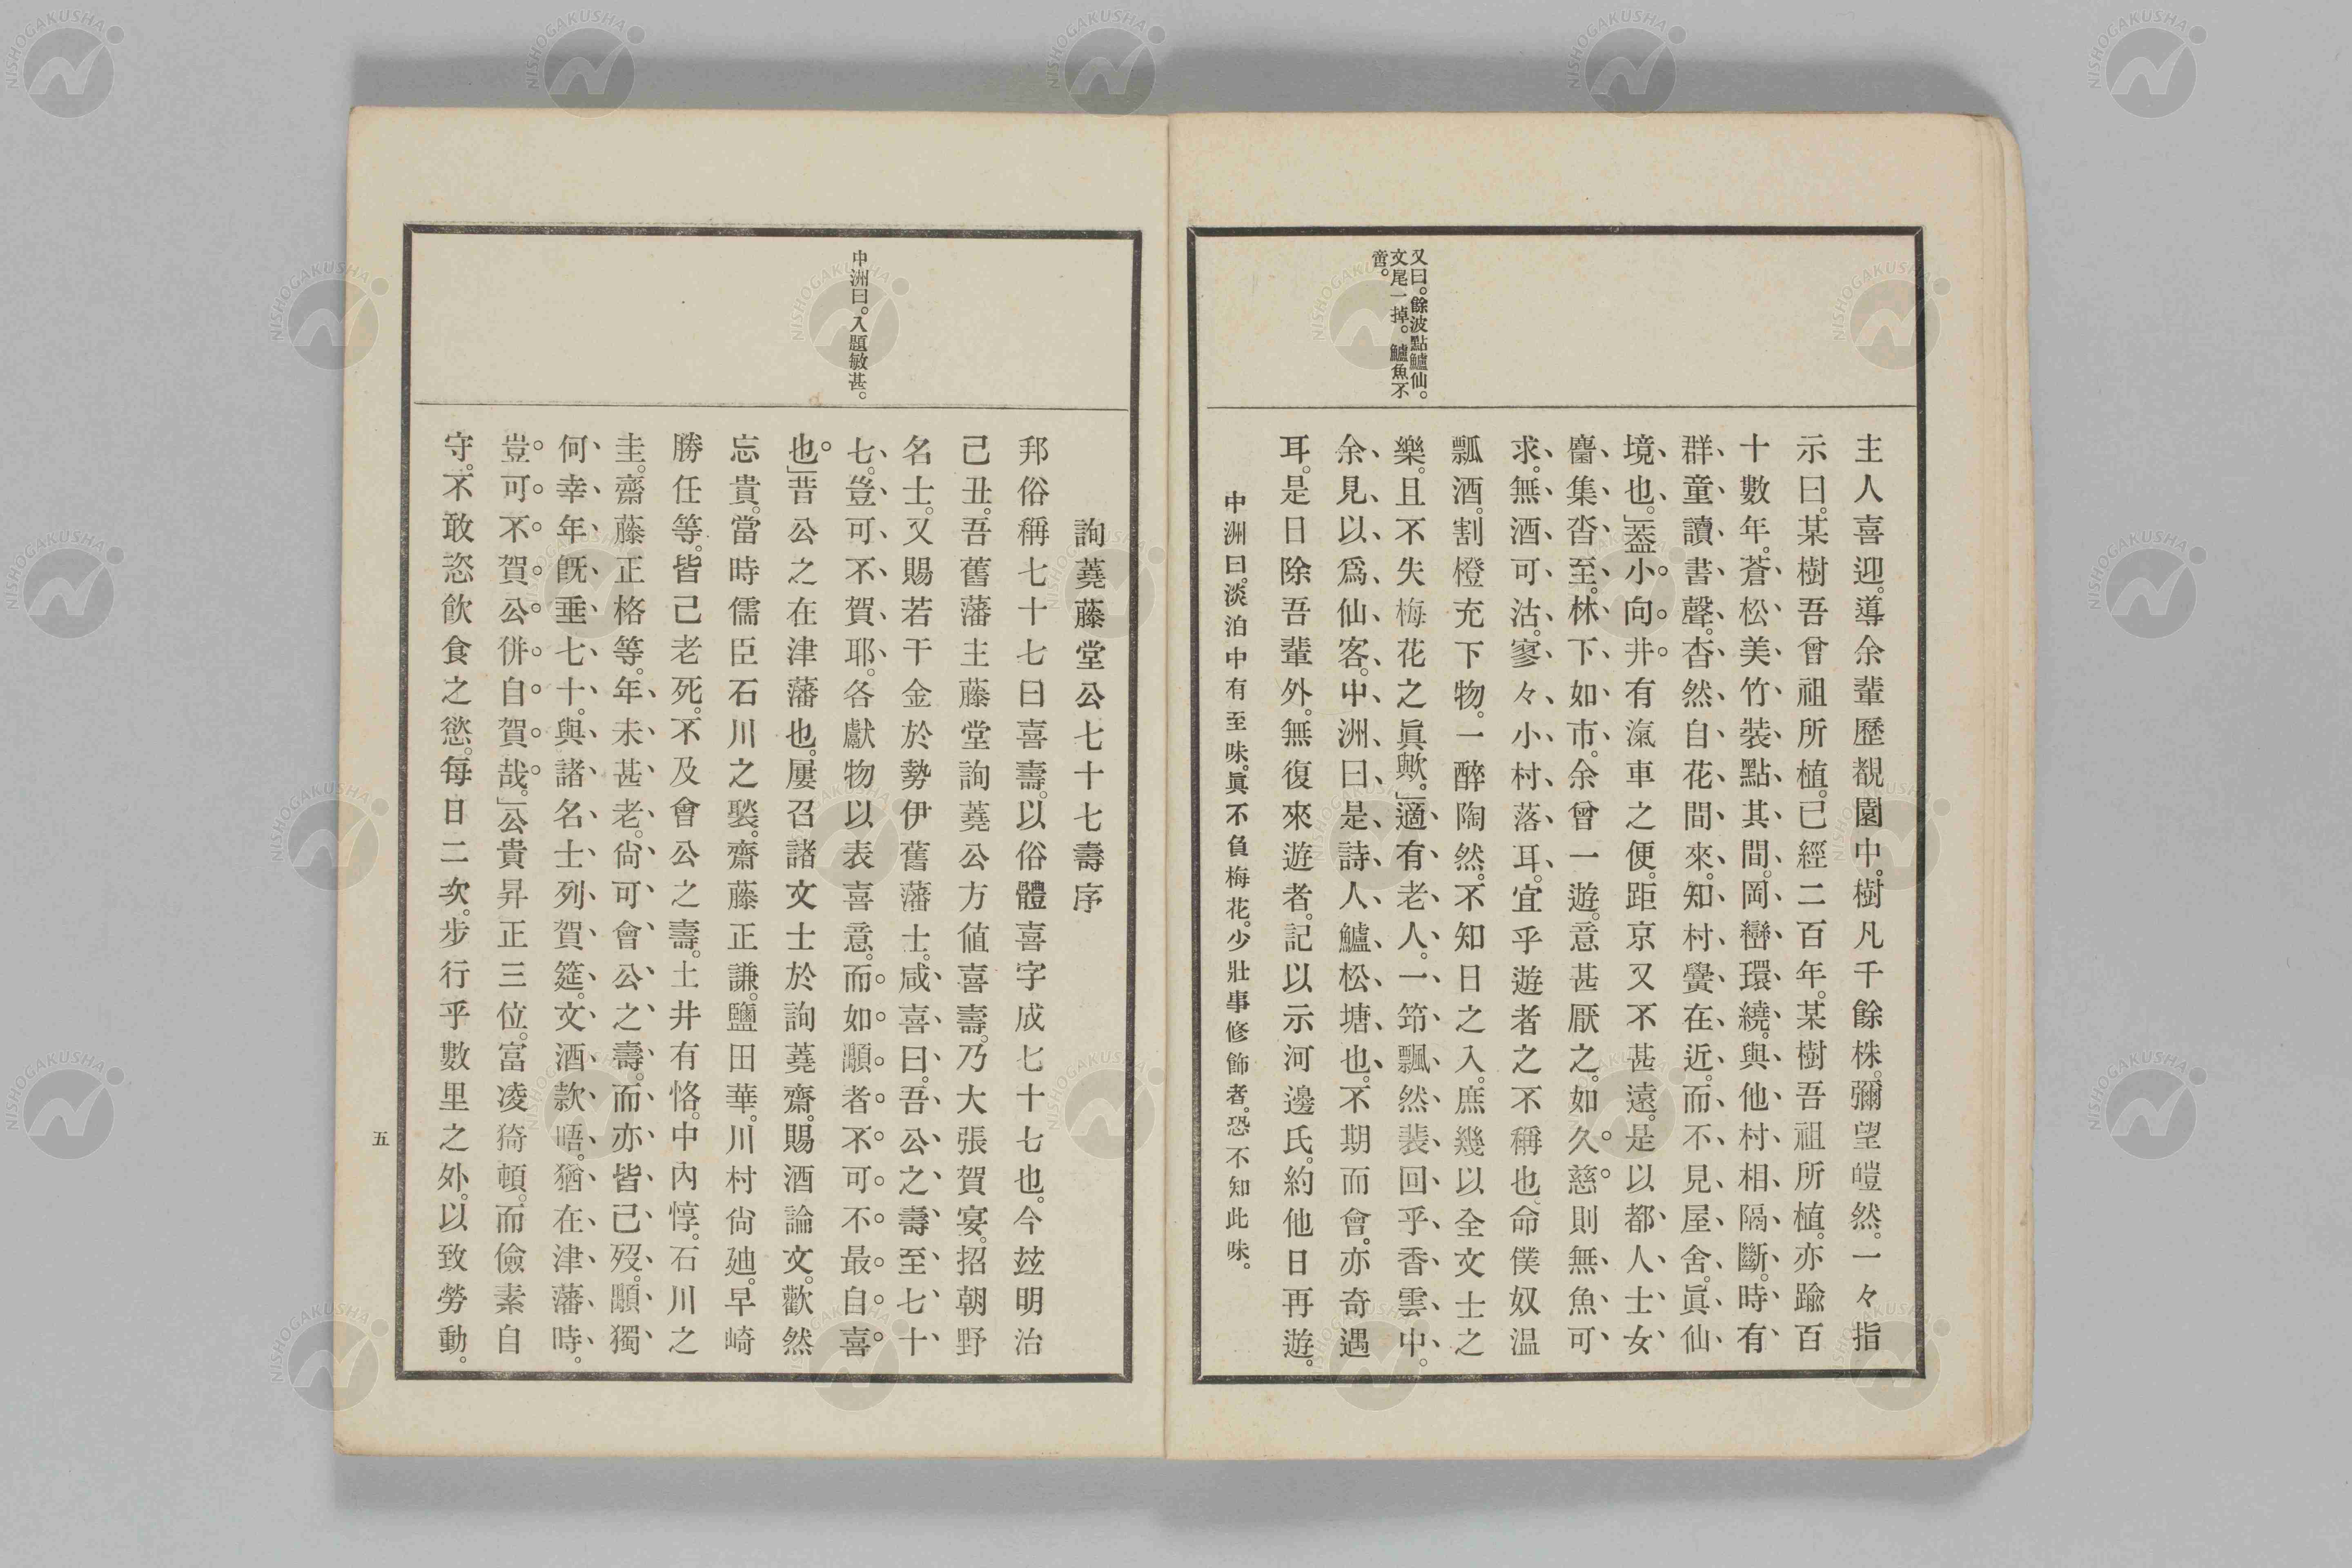 又曰。餘波點鱸仙。
文尾一掉。鱸魚不
啻。
主人喜迎。導余輩歷覩園中。樹凡千餘株。彌望皚然。一々指
示曰。某樹吾曾祖所植。已經二百年。某樹吾祖所植。亦踰百
十數年。蒼松美竹裝點其間。岡巒環繞。與他村相隔斷。時有
群童讀書聲。杳然自花間來。知村黌在近。而不見屋舍。眞仙
境也。」蓋小向井有滊車之便。距京又不甚遠。是以都人士女
麕集沓至。林下如市。余曾一遊。意甚厭之。如久慈則無魚可
求。無酒可沽。寥々小村落耳。宜乎遊者之不稱也。命僕奴温
瓢酒。割橙充下物。一醉陶然。不知日之入。庶幾以全文士之
樂。且不失梅花之眞歟。」適有老人。一筇飄然裴回乎香雲中。
余見以爲仙客。中洲曰是詩人鱸松塘也。不期而會。亦奇遇
耳。是日除吾輩外。無復來遊者。記以示河邊氏。約他日再遊。
中洲曰。淡泊中有至味。眞不負梅花。少壯事修飾者。恐不知此味。
中洲曰。入題敏甚。
詢蕘藤堂公七十七壽序
邦俗稱七十七曰喜壽。以俗體喜字成七十七也。今玆明治
己丑。吾舊藩主藤堂詢蕘公方値喜壽。乃大張賀宴。招朝野
名士。又賜若干金於勢伊舊藩士。咸喜曰。吾公之壽至七十
七。豈可不賀耶。各獻物以表喜意。而如顒者不可不最自喜
也。」昔公之在津藩也。屢召諸文士於詢蕘齋。賜酒論文。歡然
忘貴。當時儒臣石川之褧。齋藤正謙。鹽田華。川村尙廸。早崎
勝任等。皆已老死。不及會公之壽。土井有恪。中內惇。石川之
圭。齋藤正格等。年未甚老。尙可會公之壽。而亦皆已歿。顒獨
何幸年旣垂七十。與諸名士列賀筵。文酒款晤。猶在津藩時。
豈可不賀公併自賀哉。」公貴昇正三位。富凌猗頓。而儉素自
守。不敢恣飮食之慾。每日二次。步行乎數里之外。以致勞動。
五